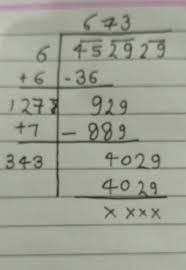 673
6 452929
+6 -36
1278 929
+7 - 889
343 4029
4029
x xxx